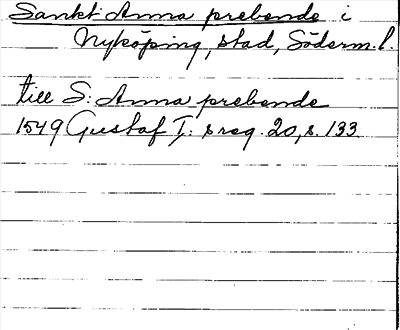 Sankt Anna prebende i
Nyköping, stad, Söderm.l.
till S: Anna prebende
1549 Gustaf I: s reg. 20, s. 133